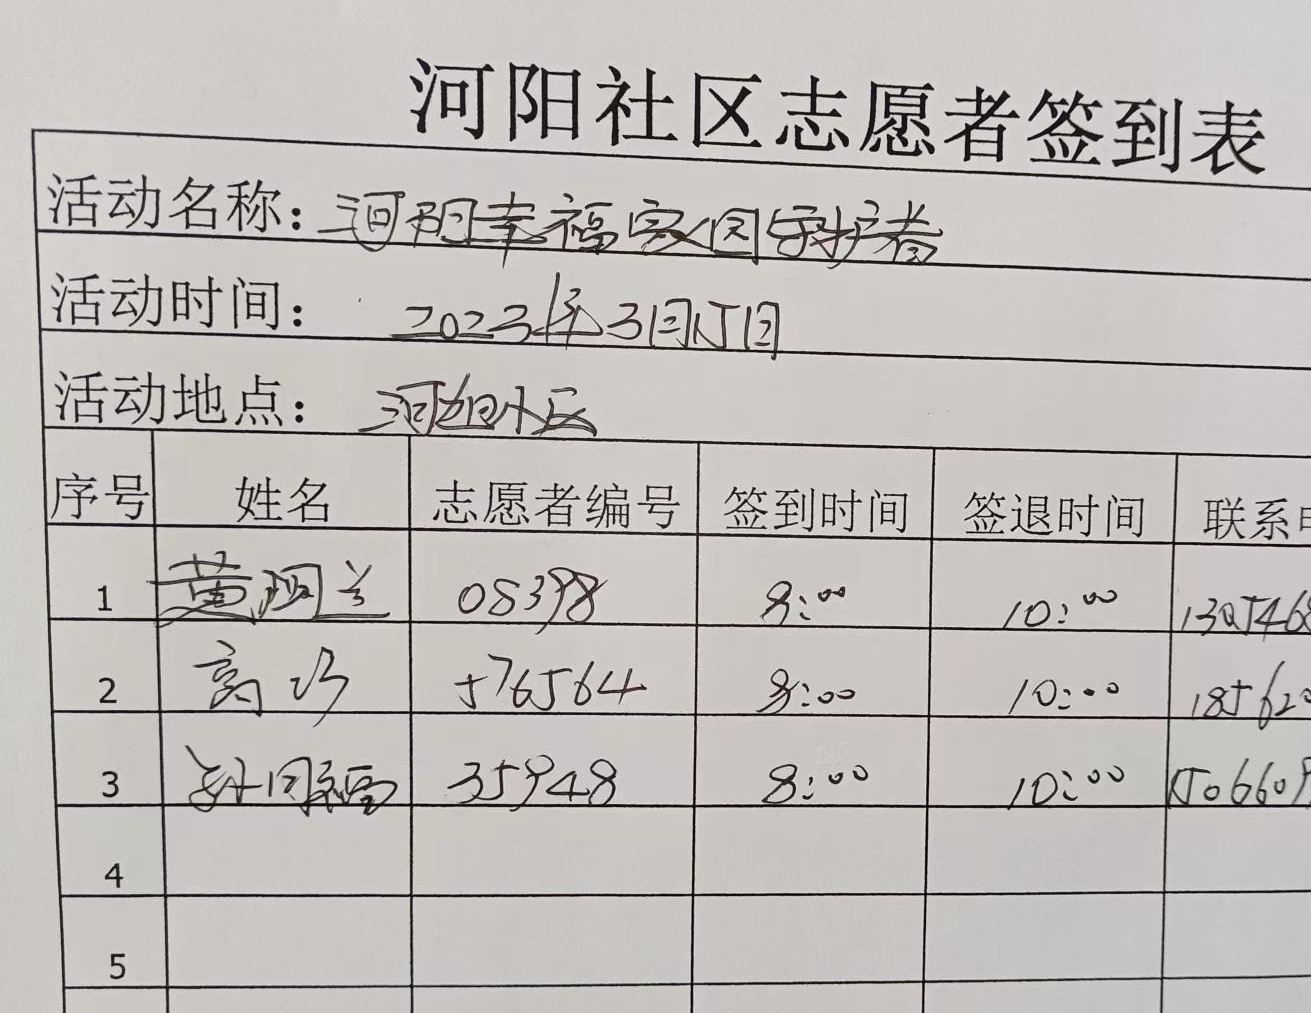 河阳社区志愿者签到表
活动名称：河阳幸福家园守护者
活动时间： 2023年3月15日
活动地点： 河阳小区
序号 姓名 志愿者编号 签到时间 签退时间 联系
1 黄 兰 08398 8:00 10:00 1305468
2 高巧 576564 8:00 10:00 185620
3 孙同福 35948 8:00 10:00 1506609
4
5